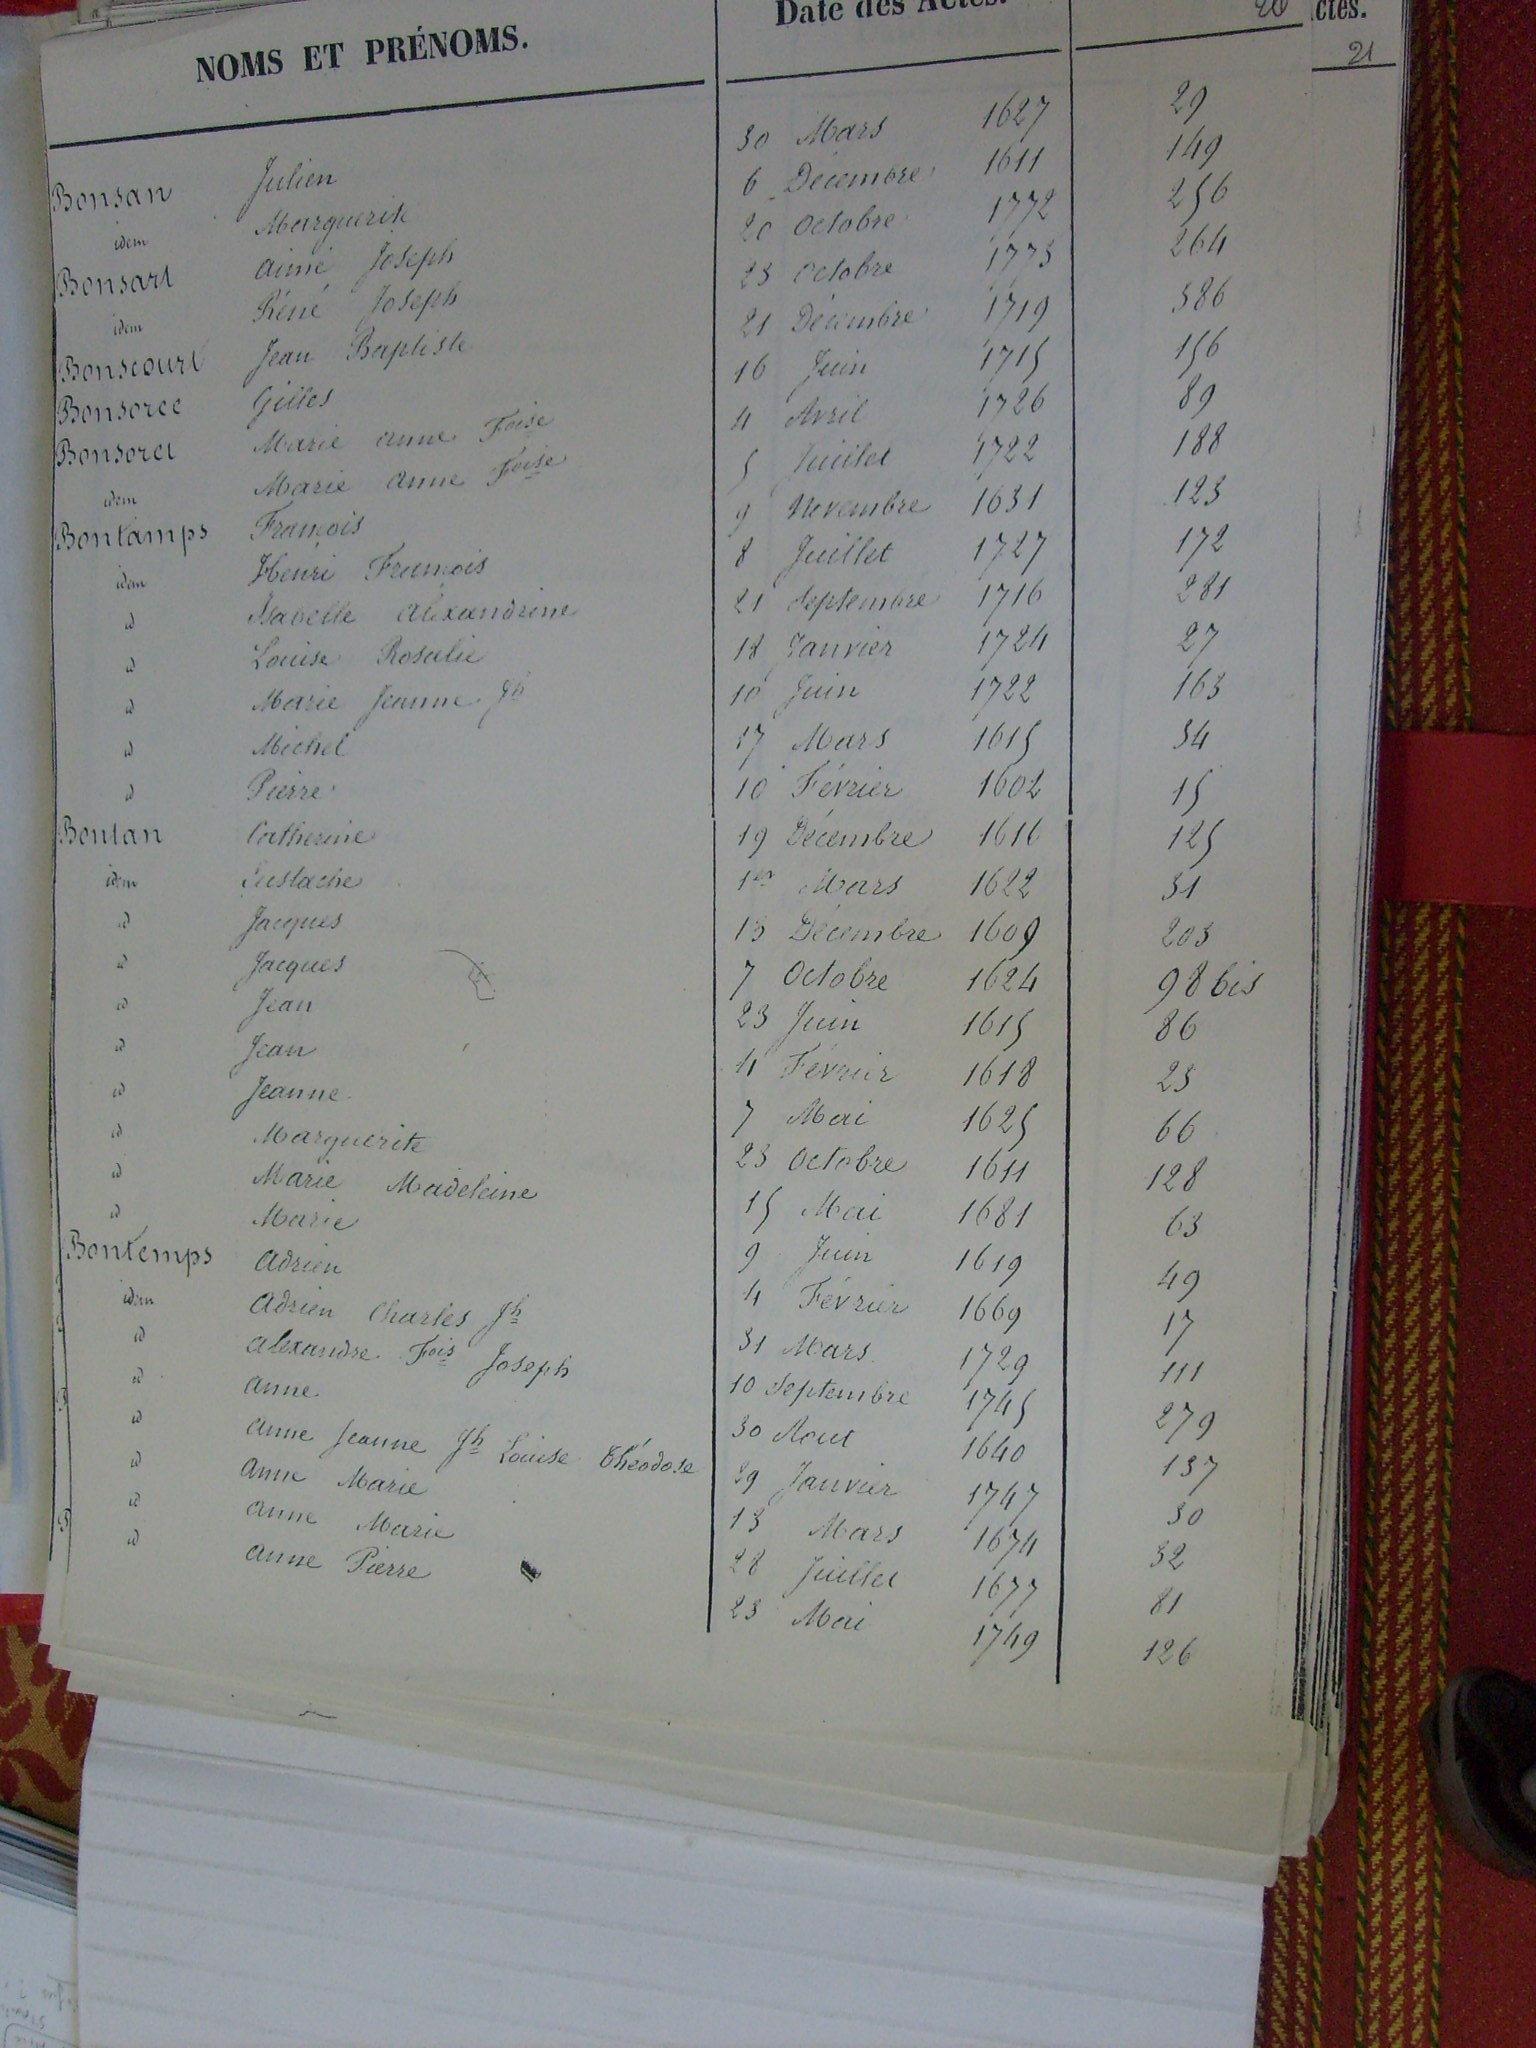 NOMS ET PRÉNOMS. Date des Actes. 20 ctes.
21
Bonsan Julien 30 Mars 1627 29
idem Marguerite 6 Décembre 1611 149
Bonsart aimé Joseph 20 octobre 1772 256
idem Réné Joseph 23 octobre 1773 264
Bonscourt Jean Baptiste 21 Décembre 1719 386
Bonsoree Gilles 16 Juin 1715 156
Bonsorel Marie anne Foise 4 Avril 1726 89
idem Marie anne Foise 5 Juillet 1722 188
Bontamps François 9 Novembre 1631 123
idem Henri François 8 Juillet 1727 172
id Isabelle alexandrine 21 Septembre 1716 281
id Louise Rosalie 18 Janvier 1724 27
id Marie Jeanne Jh 10 Juin 1722 163
id Michel 17 Mars 1615 34
id Pierre 10 Février 1602 15
Bontan Catherine 19 Décembre 1616 125
idem Eustache 1er Mars 1622 31
id Jacques 13 Décembre 1609 203
id Jacques 7 Octobre 1624 98 bis
id Jean 23 Juin 1615 86
id Jean 4 Février 1618 23
id Jeanne 7 Mai 1625 66
id Marguerite 23 octobre 1611 128
id Marie Madeleine 15 Mai 1681 63
id Marie 9 Juin 1619 49
Bontemps adrien 4 Février 1669 17
idem adrien Charles Jh 31 Mars 1729 111
id alexandre Fois Joseph 10 Septembre 1745 279
id anne 30 Aout 1640 137
id anne Jeanne Jh Louise Théodose 29 Janvier 1747 30
id anne Marie 13 Mars 1674 32
id anne Marie 28 Juillet 1677 81
id anne Pierre 23 Mai 1749 126